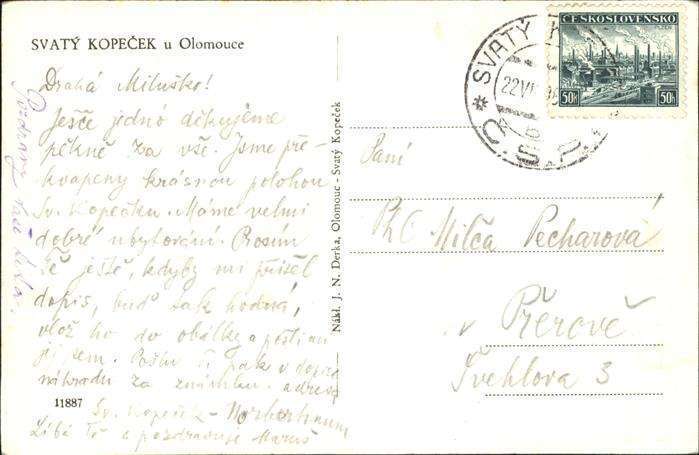 SVATÝ KOPEČEK u Olomouce
Drahá Miluško!
Ješče jednó děkujeme
pěkně za vše. Jsme pře-
kvapeny krásnou polohou
Sv. Kopečku. Máme velmi
dobré ubytování. Prosím
Tě ještě, kdyby mi přišel
dopis, buď tak hodná,
vlož ho do obálky a
sem. Pošlu Ti pak v dopise
náhradu za známku. adresa
11887
Sv. Kopeček - Norbertinum
Líbá Tě a pozdravuje
Pozdravy
Nákl. J. N. Derka, Olomouc - Svatý Kopeček
ČESKOSLOVENSKO
PLZEŇ
50h
50h
* SVATÝ K
22 VI
Paní
PhC Milča Pecharová
v Přerově
Švehlova 3